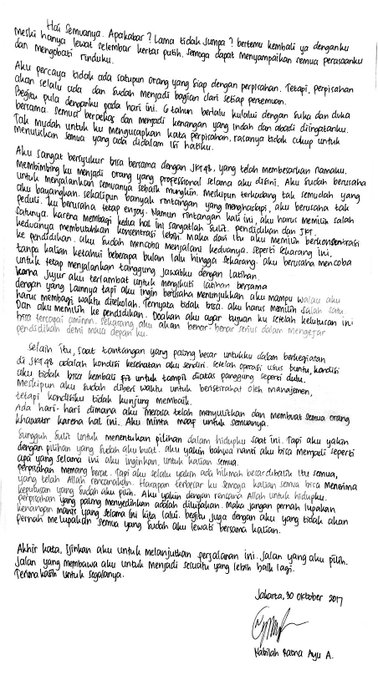 Hai semuanya. Apakabar? Lama tidak Jumpa? bertemu kembali ya denganku
Meski hanya lewat selembar kertas putih, semoga dapat menyampaikan semua perasaanku
dan mengobati rinduku.
Aku percaya tidak ada satupun orang yang siap dengan perpisahan. Tetapi, perpisahan
akan selalu ada dan sudah menjadi bagian dari setiap penemuan.
Begitu pula denganku pada hari ini. 6 tahun berlalu kulalui dengan suka dan duka
bersama. Semua berbekas dan menjadi kenangan yang indah dan abadi diingatanku.
Tak mudah untuk ku mengucapkan kata perpisahan, rasanya tidak cukup untuk
menuliskan semua yang ada didalam isi hatiku.
Aku sangat bersyukur bisa bersama dengan JKT48. yang telah membesarkan namaku.
Membimbing ku menjadi orang yang professional selama aku disini. Aku sudah berusaha
untuk menjalankan semuanya sebaik mungkin. Meskipun terkadang tak semudah yang
aku bayangkan. sekalipun banyak rintangan yang menghadapi, aku berusaha tak
peduli. ku berusaha tetap enjoy. Namun rintangan kali ini, aku harus memilih salah
satunya. karena membagi kedua hal ini sangatlah sulit. pendidikan dan JKT.
keduanya membutuhkan konsentrasi lebih. maka dari itu aku memilih berkonsentrasi
ke pendidikan. aku sudah mencoba menjalani keduanya. seperti sekarang ini.
tanpa kalian ketahui beberapa bulan lalu hingga sekarang. aku berusaha mencoba
untuk tetap menjalankan tanggung jawabku dengan latihan.
karna Jujur aku terlambat untuk mengikuti latihan bersama
dengan yang lainnya tapi aku ingin berusaha menunjukkan aku mampu walau aku
harus membagi waktu disekolah. Ternyata tidak bisa. aku harus memilih salah satu.
Dan aku memilih ke pendidikan. Doakan aku agar tujuan ku setelah kelulusan ini
bisa tercapai aminnn. Sekarang aku akan benar-benar serius dalam mengejar
pendidikan demi masa depan ku.
Selain itu, saat tantangan yang paling besar untukku dalam berkegiatan
di JKT48 adalah kondisi kesehatan aku sendiri. setelah operasi usus buntu, kondisi
aku tidak bisa kembali fit untuk tampil diatas panggung seperti dulu.
Meskipun aku sudah diberi waktu untuk beristirahat oleh manajemen,
tetapi kondisiku tidak kunjung membaik.
Ada hari-hari dimana aku merasa telah menyulitkan dan membuat semua orang
khawatir karena hal ini. Aku minta maaf untuk semuanya.
Sungguh sulit untuk menentukan pilihan dalam hidupku saat ini. Tapi aku yakin
dengan pilihan yang sudah aku buat. aku yakin bahwa nanti aku bisa menjadi seperti
apa yang selama ini aku inginkan untuk kalian semua.
perpisahan memang berat. Tapi aku selalu yakin ada hikmah besar dibalik itu semua,
yang telah Allah rencanakan. Harapan terbesar ku semoga kalian semua bisa menerima
keputusan yang sudah aku pilih. Aku yakin dengan rencana Allah untuk hidupku.
Perpisahan yang paling menyedihkan adalah dilupakan. Maka jangan pernah lupakan
kenangan manis yang selama ini kita lalui. begitu juga dengan aku yang tidak akan
pernah melupakan semua yang sudah aku lewati bersama kalian.
Akhir kata, Ijinkan aku untuk melanjutkan perjalanan ini. Jalan yang aku pilih.
Jalan yang membawa aku untuk menjadi sesuatu yang lebih baik lagi.
Terima kasih untuk segalanya.
Jakarta, 30 Oktober 2017
Nabilah Ratna Ayu A.